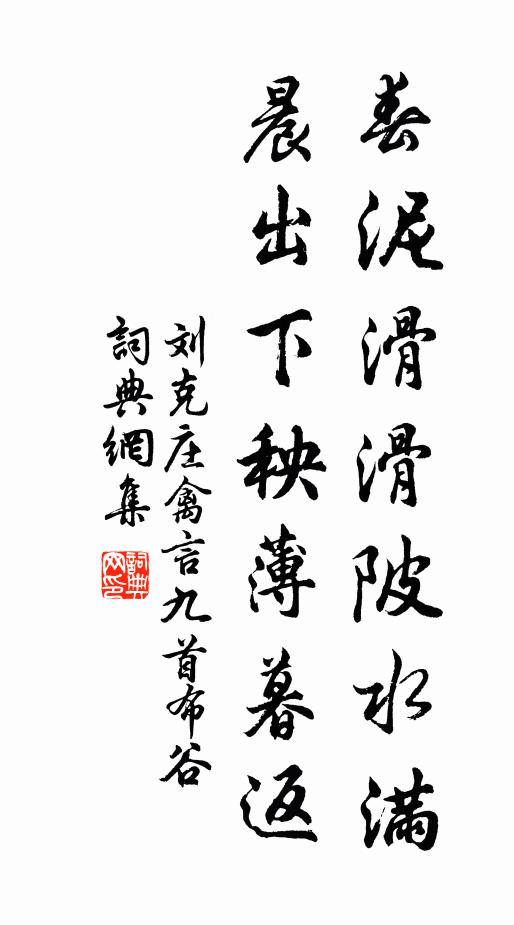 春泥滑滑陂水满
晨出下秧薄暮返
刘克庄禽言九首布谷
詞典網集
詞典网印